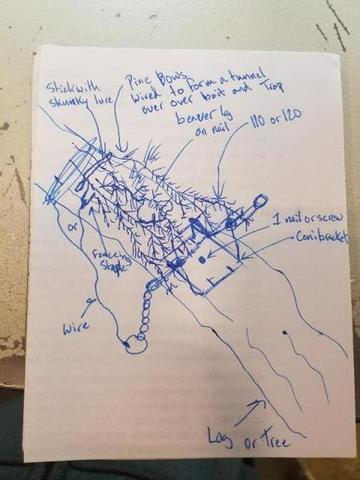 Stick with
skunky lure
Pine Bows
wired to form a tunnel
over over bait and Trap
beaver leg
on nail
110 or 120
1 nail or screw
Conibracket
or
Fencing
staple
Wire
Log or Tree